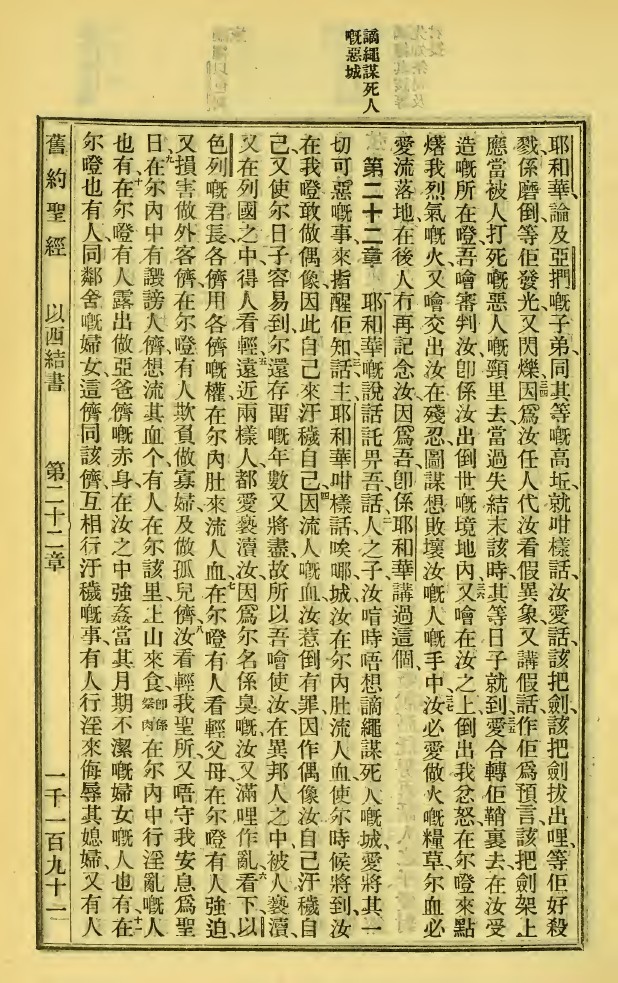 謫繩謀死人
嘅惡城
耶和華論及亞捫嘅子弟同其等嘅高坵就咁樣話汝愛話該把劍該把劍拔出哩等佢好殺
戮係磨倒等佢發光又閃爍三四因爲汝任人代汝看假異象又講假話作佢爲預言該把劍架上
應當被人打死嘅惡人嘅頸里去當過失結末該時其等日子就到三五愛合轉佢鞘裏去在汝受
造嘅所在磴吾噲審判汝卽係汝出倒世嘅境地內三六又噲在汝之上倒出我忿怒在尔磴來點
燔我烈氣嘅火又噲交出汝在殘忍圖謀想敗壞汝嘅人嘅手中三七汝必愛做火嘅糧草尔血必
愛流落地在後人冇再記念汝因爲吾卽係耶和華講過這個
第二十二章 耶和華嘅說話託畀吾話二人之子汝啃時唔想謫繩謀死人嘅城愛將其一
切可惡嘅事來指醒佢知三話主耶和華咁樣話唉哪城汝在尔內肚流人血使尔時候將到汝
在我磴敢做偶像因此自己來汙穢自己四因流人嘅血汝惹倒有罪因作偶像汝自己汙穢自
己又使尔日子容易到尔還存畱嘅年數又將盡故所以吾噲使汝在異邦人之中被人褻瀆
又在列國之中得人看輕五遠近兩樣人都愛褻瀆汝因爲尔名係臭嘅汝又滿哩作亂六看下以
色列嘅君長各儕用各儕嘅權在尔內肚來流人血七在尔磴有人看輕父母在尔磴有人強迫
又損害做外客儕在尔磴有人欺負做寡婦及做孤兒儕八汝看輕我聖所又唔守我安息爲聖
日九在尔內中有譭謗人儕想流其血个有人在尔該里上山來食卽係祭肉在尔內中行淫亂嘅人
也有十在尔磴有人露出做亞爸儕嘅赤身在汝之中強姦當其月期不潔嘅婦女嘅人也有十一在
尔磴也有人同鄰舍嘅婦女這儕同該儕互相行汙穢嘅事有人行淫來侮辱其媳婦又有人
舊約聖經 以西結書 第二十二章 一千一百九十一